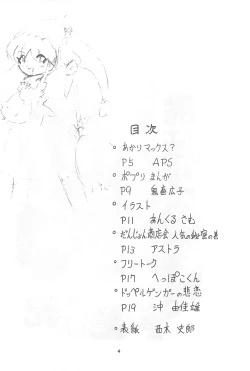 目次
。あかりマックス?
P5 APS
。ポプリまんが
P9 鬼畜広子
。イラスト
P11 あんくるさむ
。だんじょん商店会 人気の秘密の
P13 アストラ
。フリートーク
P17 へっぽこくん
。ドッペルゲンガーの悲恋
P19 沖 由佳雄
。表紙 西木史郎
4